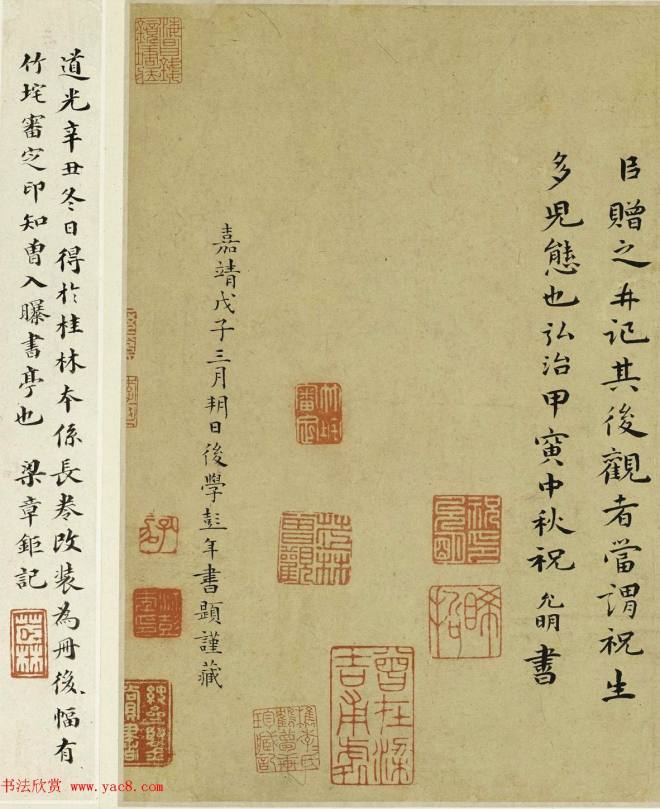 臣贈之并記其後觀者當謂祝生
多兒態也弘治甲寅中秋祝允明書
嘉靖戊子三月朔日後學彭年書題謹藏
道光辛丑冬日得於桂林本係長卷改裝為冊後幅有
竹垞審定印知曾入曝書亭也 梁章鉅記
竹垞審定
茝林曾觀
曾在梁吉甫處
茝林
书法欣赏 www.yac8.com